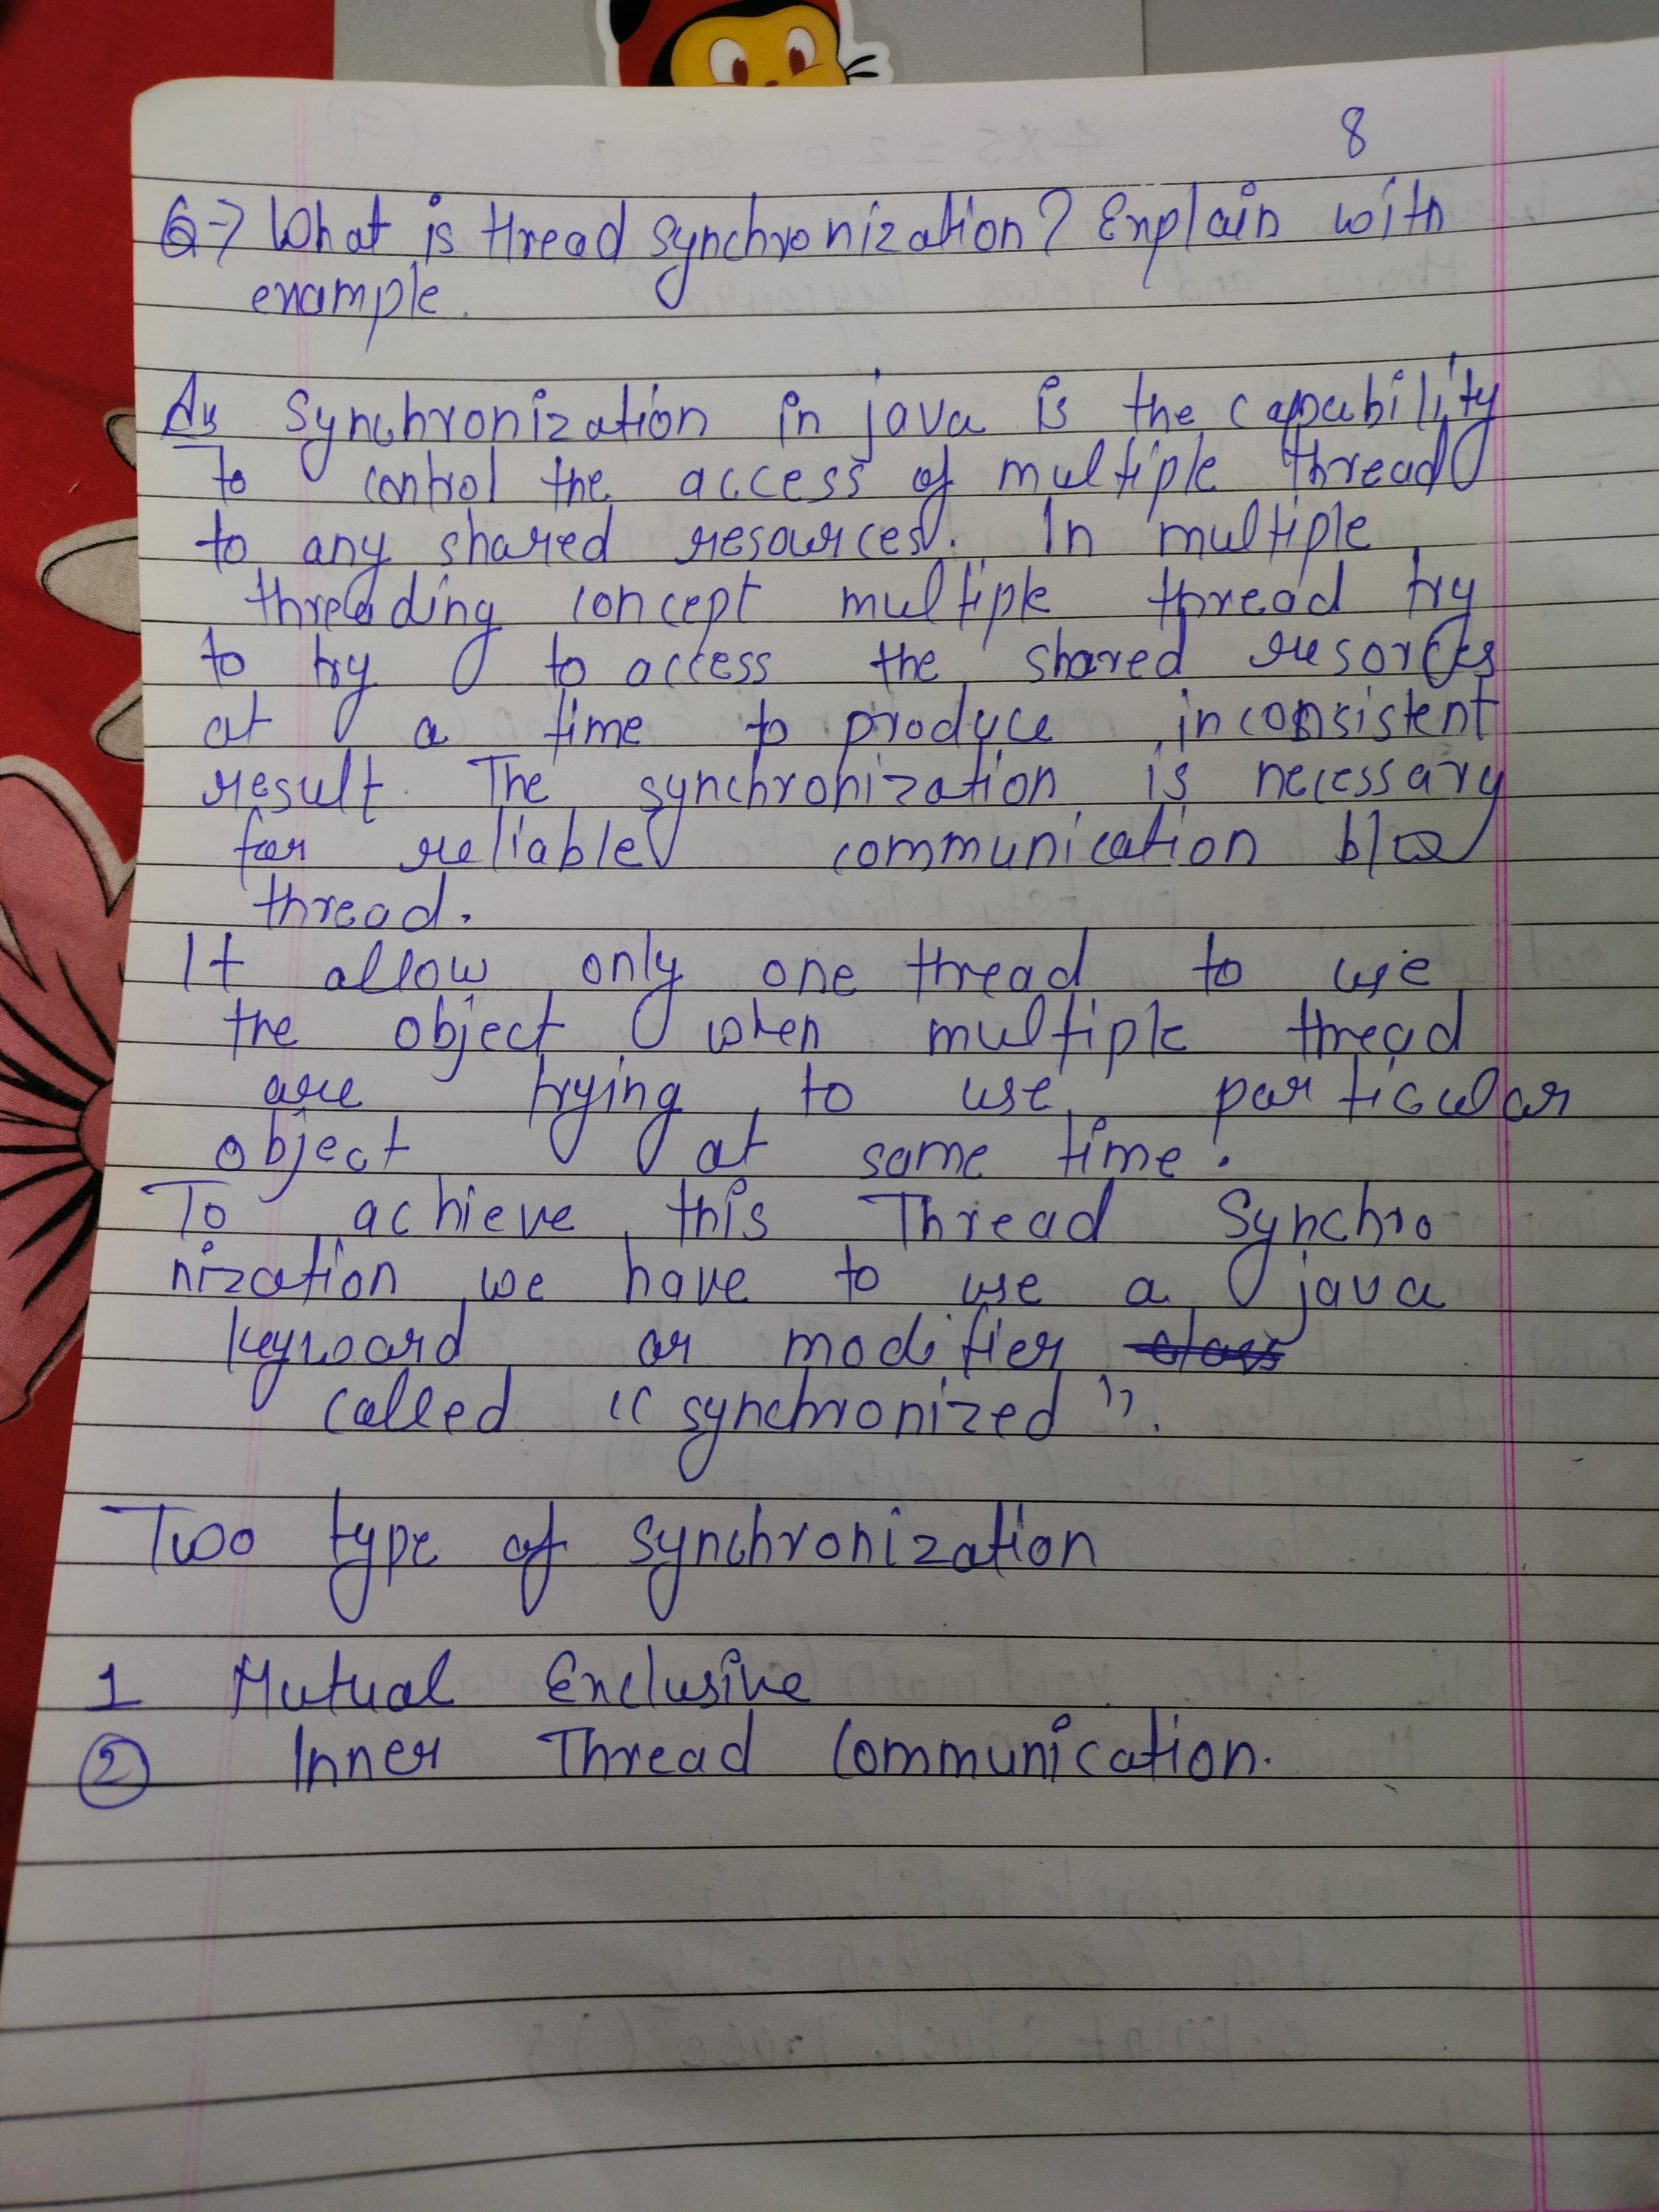 8
Q→ What is thread synchronization? Explain with
example.
Ans Synchronization in java is the capability
To control the access of multiple thread
to any shared resources. In multiple
threading concept multiple thread try
to try to access the shared resorces
at a time to produce inconsistent
result. The synchronization is necessary
for reliable communication b/w
thread.
It allow only one thread to use
the object when multiple thread
are trying to use particular
object at same time.
To achieve this Thread Synchro
nization we have to use a java
keyword or modifier class
called "synchronized".
Two type of synchronization
1 Mutual Exclusive
2 Inner Thread Communication.